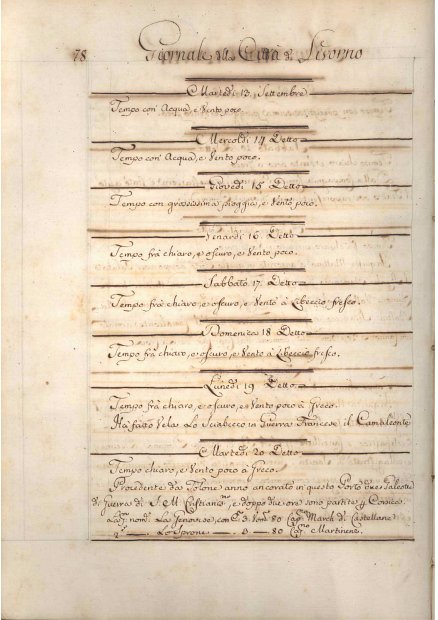 78 Giornale della Città di Livorno
Martedì 13 Settembre
Tempo con' Acqua, e Vento poco.
Mercoldì 14 Detto
Tempo con' Acqua, e Vento poco.
Giovedì 15 Detto
Tempo con grossissima pioggia, e Vento poco.
Venardì 16 Detto
Tempo frà chiaro, e oscuro, e Vento poco.
Sabbato 17 Detto
Tempo frà chiaro, e oscuro, e Vento à Libeccio fresco.
Domenica 18 Detto
Tempo frà chiaro, e oscuro, e Vento à Libeccio fresco.
Lunedì 19 Detto
Tempo frà chiaro, e oscuro, e Vento poco à Greco.
Hà fatto Vela Lo Sciabecco in Guerra Francese il Camaleonte
Martedì 20 Detto
Tempo chiaro, e Vento poco à Greco.
Procedente da Tolone anno ancorato in questo Porto due Galeotte
di Guerra di S. M. Cristian.ma, e doppo due ore sono partite p Corsica
nom.a La Genovese, con C.i 3 Vom.i 80 Cap.no March di Castellane
2.a Lo Sprone 0 80 Cap.no Martinene